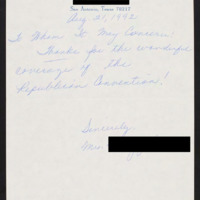 San Antonio, Texas 78217
Aug 21, 1992
To Whom It May Concern
Thanks for the wonderful
coverage of the
Republican Convention!
Sincerely,
Mrs.